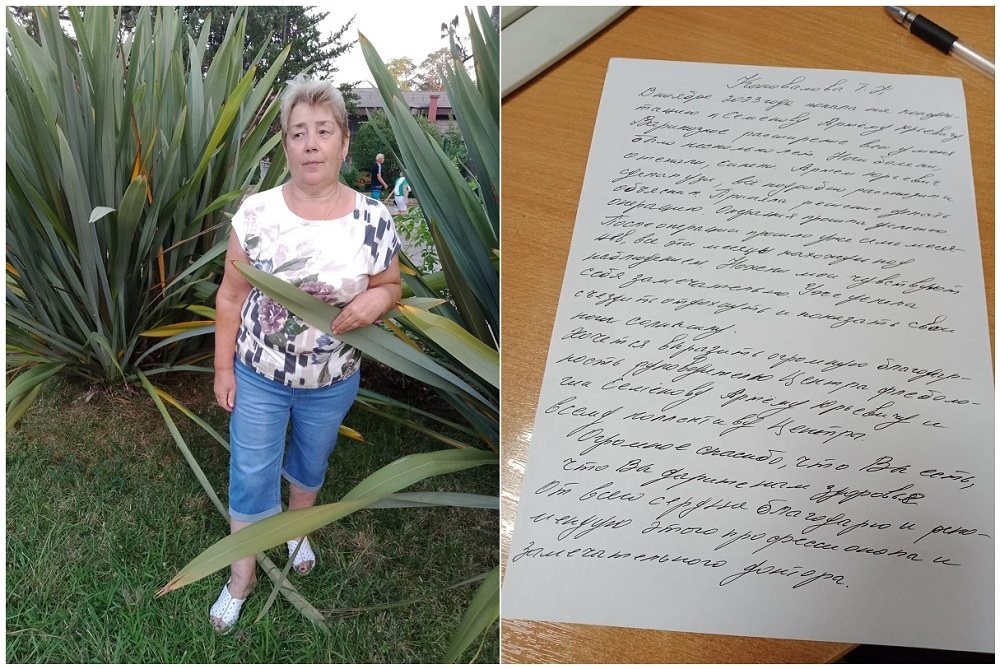 Коновалова Т. Н
В ноябре 2023 года попала на консуль-
тацию к Семёнову Артёму Юрьевичу
Варикозное расширение вен у меня
было несколько лет. Ноги болели
отекали, синели. Артём Юрьевич
сделал узи, всё подробно рассказал и
объяснил. Приняла решение делать
операцию. Операция прошла успешно
После операции прошло уже месяцев,
все эти месяцы нахожусь под
наблюдением. Ножки мои чувствуют
себя замечательно. Уже успела
съездить отдохнуть и показать свои
ноги солнышку.
Хочется выразить огромную благодар-
ность руководителю Центра флеболо-
гии Семёнову Артёму Юрьевичу и
всему коллективу Центра.
Огромное спасибо, что Вы есть,
что Вы дарите нам здоровье
От всего сердца благодарю и реко-
мендую этого профессионала и
замечательного доктора.